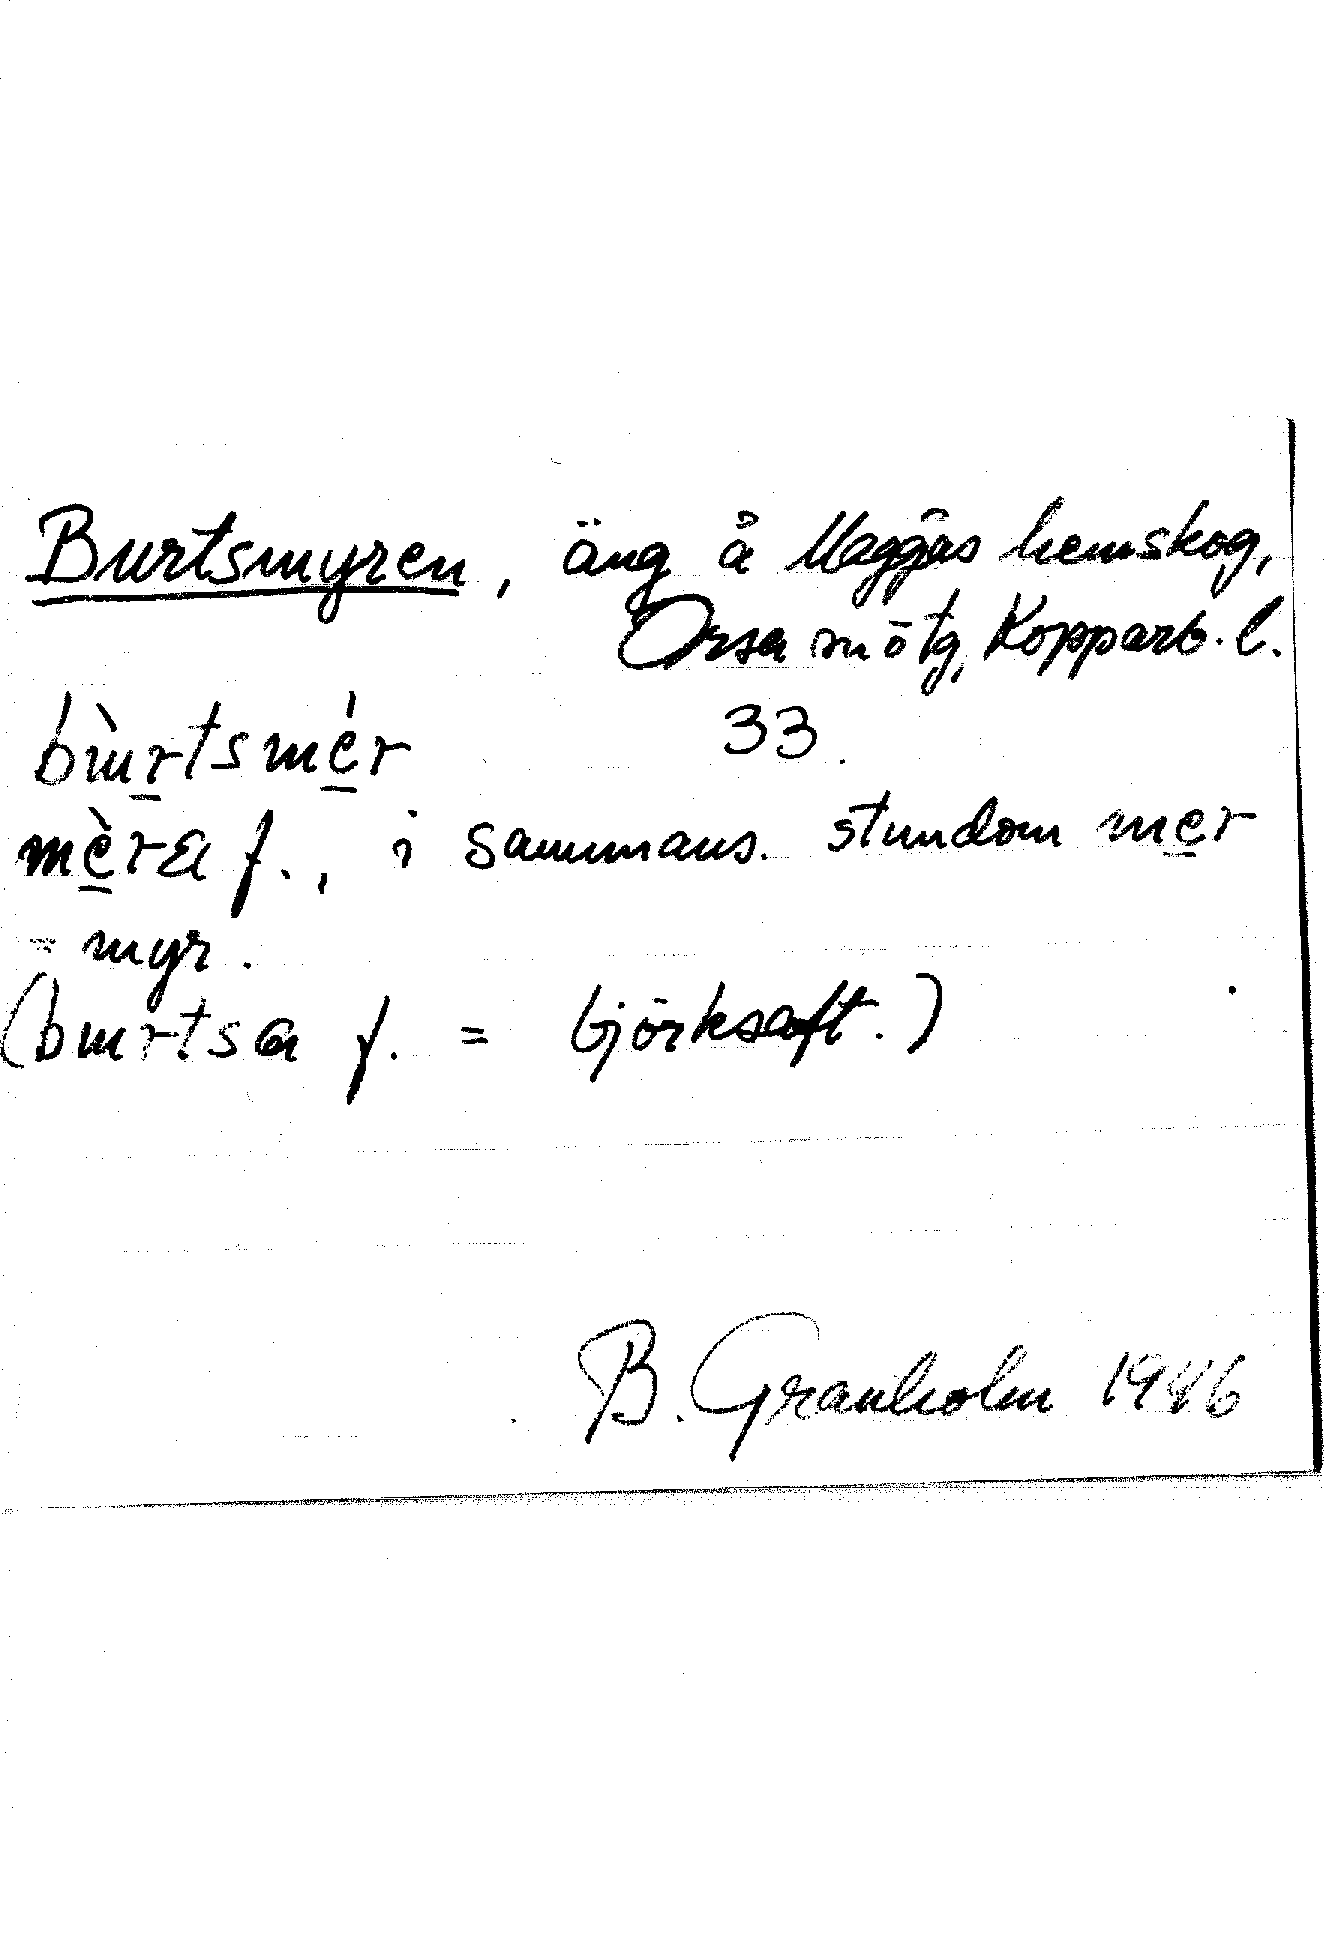 Burtsmyren, äng å Maggås hemskog,
Orsa snötg, Kopparb. l.
bɯ̀r̠tsmé̠r 33.
mè̠ra f., i sammans. stundom me̠r
= myr.
(bɯrtsa f. = björksaft.)
B. Granholm 1946